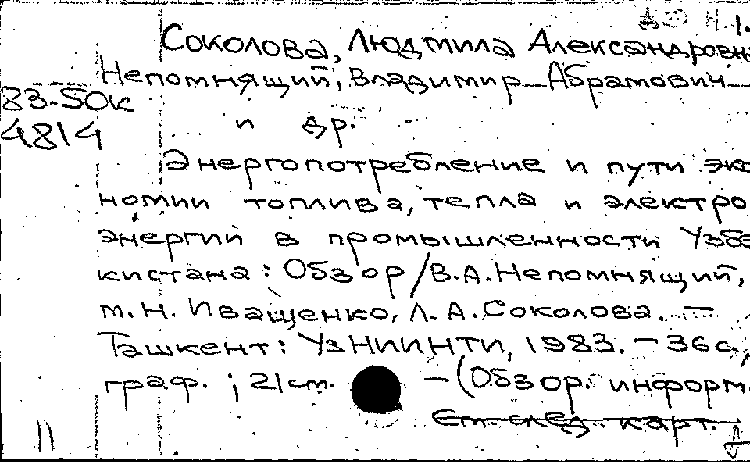 1.
Соколова, Людмила Александровн
Непомнящий, Владимир Абрамович
83-50к
4814
и др.
Энергопотребление и пути эко
номии топлива, тепла и электро
энергий в промышленности Узбе
кистана: Обзор/В.А.Непомнящий,
т.Н. Иващенко, Л.А.Соколова. —
Ташкент: УзНИИНТИ, 1983. — 36с,
граф. ; 21см. — (Обзор. информ.
См. след. карт.